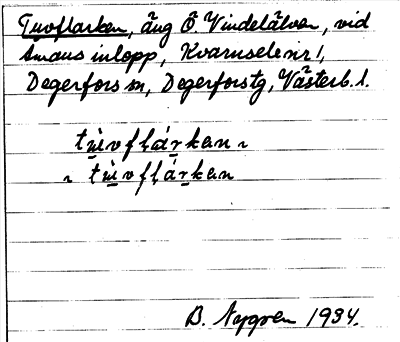 Tuvflarken, äng Ö. Vindelälven, vid
Amans inlopp, Kvarnsele nr 1,
Degerfors sn, Degerforstg, Västerb. l.
B. Nygren 1934.